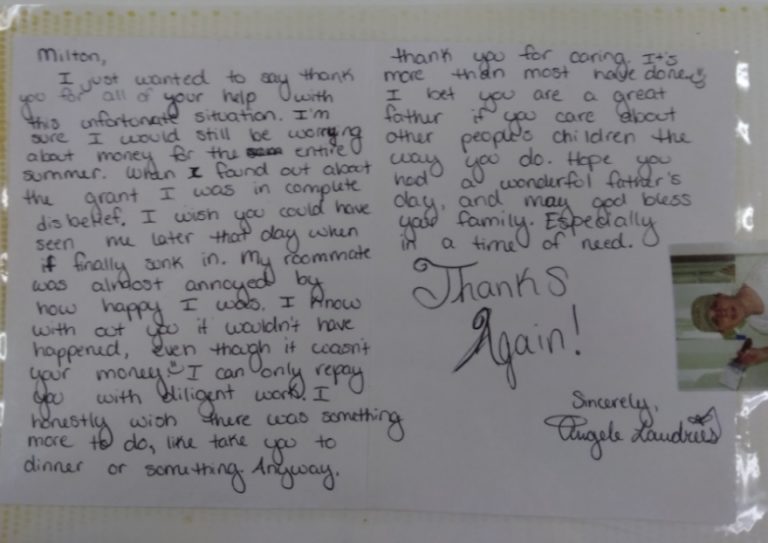 Milton,
I just wanted to say thank
you for all of your help with
this unfortunate situation. I'm
sure I would still be worrying
about money for the entire
summer. When I found out about
the grant I was in complete
disbelief. I wish you could have
seen me later that day when
it finally sunk in. My roommate
was almost annoyed by
how happy I was. I know
with out you it wouldn't have
happened, even though it wasn't
your money. I can only repay
you with diligent work. I
honestly wish there was something
more to do, like take you to
dinner or something. Anyway,
thank you for caring. It's
more than most have done.
I bet you are a great
father if you care about
other people's children the
way you do. Hope you
had a wonderful father's
day, and may god bless
your family. Especially
in a time of need.
Thanks
Again!
Sincerely,
Angele Landries